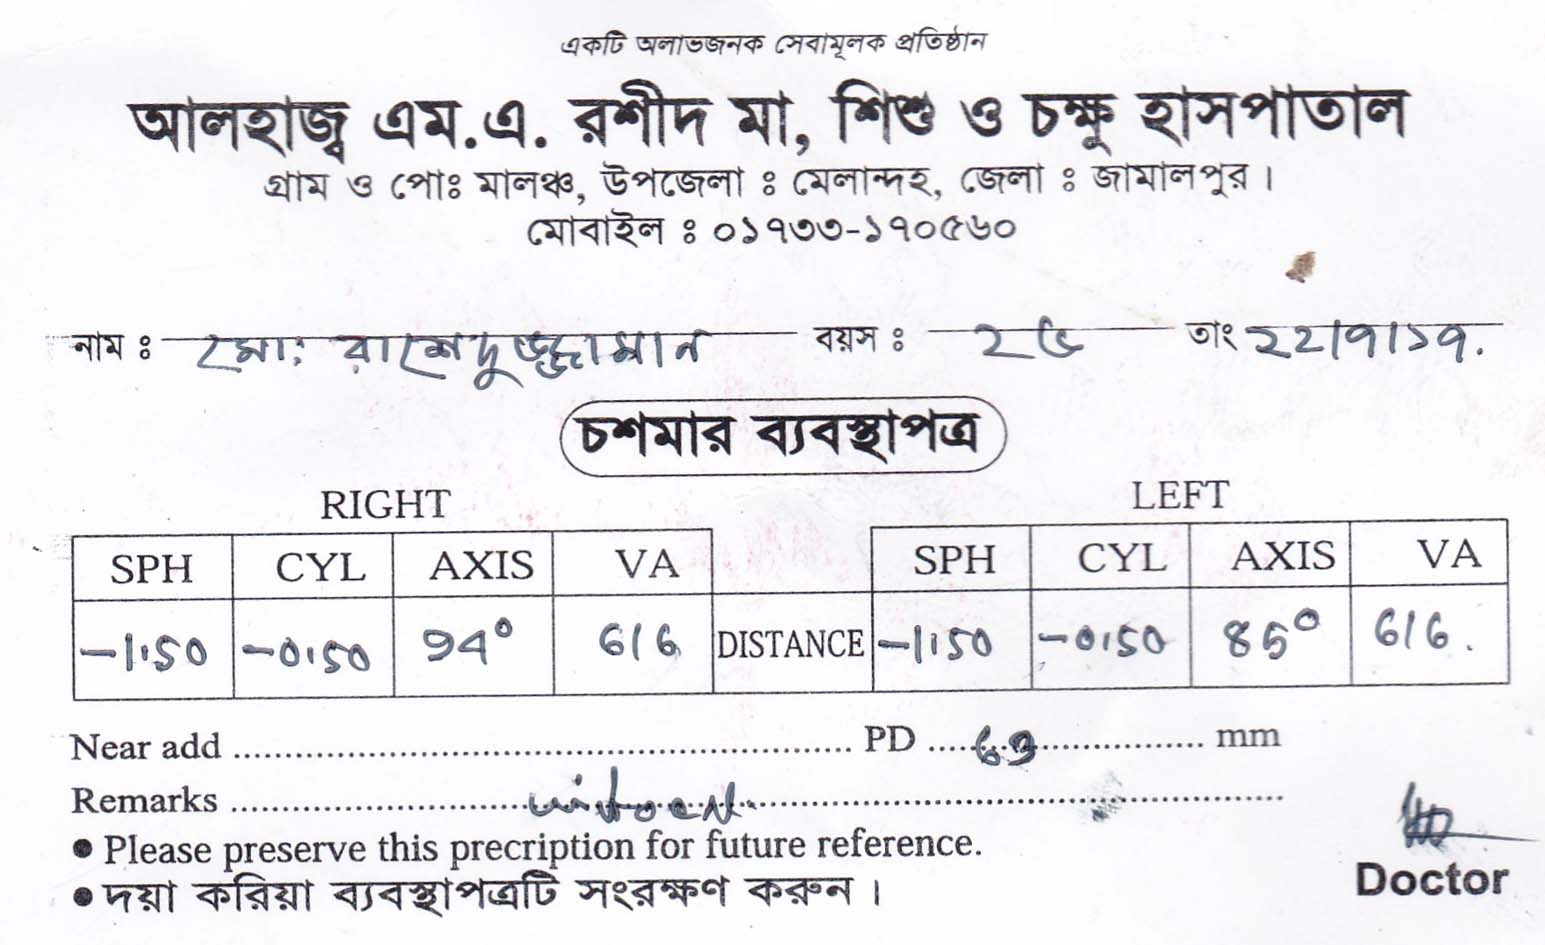 একটি অলাভজনক সেবামূলক প্রতিষ্ঠান
আলহাজ্ব এম.এ. রশীদ মা, শিশু ও চক্ষু হাসপাতাল
গ্রাম ও পোঃ মালঞ্চ, উপজেলা : মেলান্দহ, জেলা : জামালপুর।
মোবাইল : ০১৭৩৩-১৭০৫৬০
নাম : মো: রাশেদুজ্জামান বয়স : ২৬ তাং ২২/৭/১৭.
চশমার ব্যবস্থাপত্র
RIGHT LEFT
SPH CYL AXIS VA SPH CYL AXIS VA
-1.50 -0.50 94° 6/6 DISTANCE -1.50 -0.50 85° 6/6.
Near add ........ PD .... mm
Remarks ........
● Please preserve this precription for future reference.
● দয়া করিয়া ব্যবস্থাপত্রটি সংরক্ষণ করুন।
Doctor